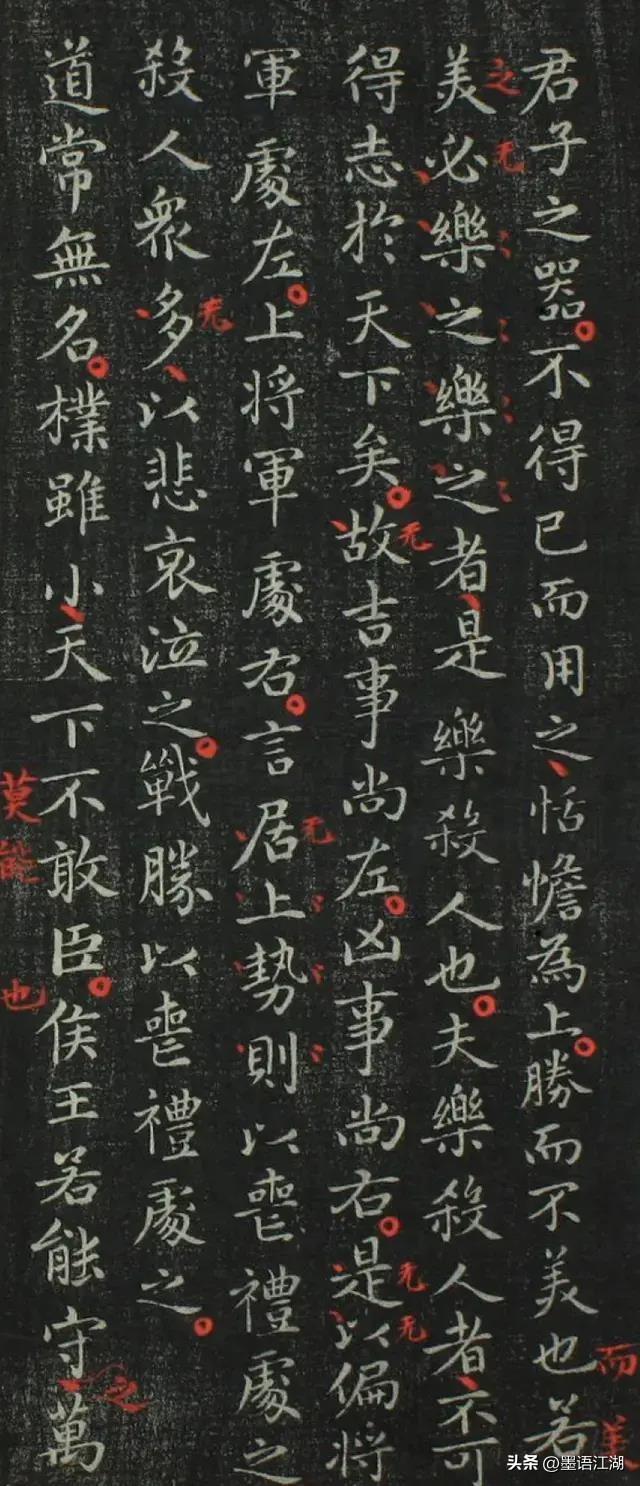 君子之器不得已而用之恬憺為上勝而不美也若
美必樂之樂之者是樂殺人也夫樂殺人者不可
得志於天下矣故吉事尚左凶事尚右是以偏将
軍處左上将軍處右言居上勢則以喪禮處之
殺人衆多以悲哀泣之戰勝以喪禮處之
道常無名樸雖小天下不敢臣侯王若能守萬
而美
之无
无
无无
无
无
莫能也
之
头条 @墨语江湖